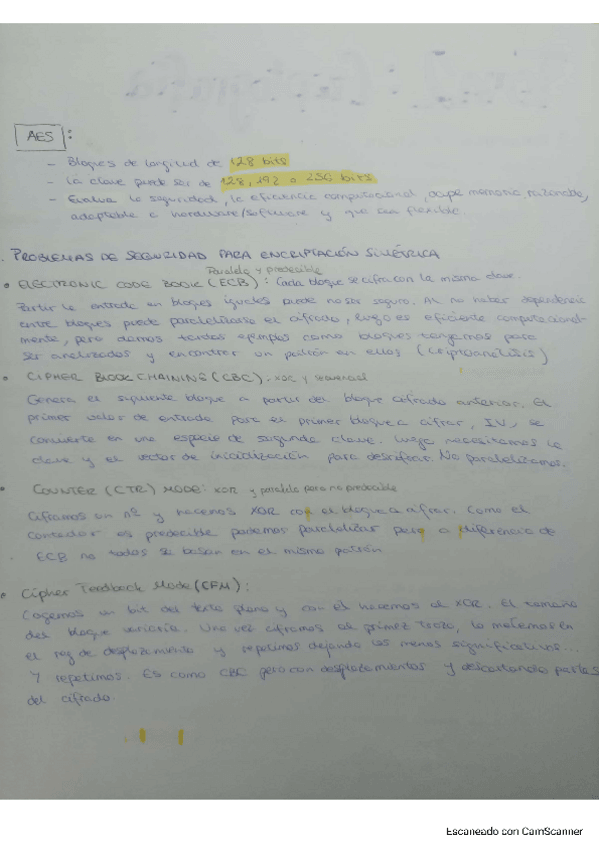 AES :
- Bloques de longitud de 128 bits
- La clave puede ser de 128, 192 o 256 bits
- Evalua la seguridad, la eficiencia computacional, ocupe memoria razonable,
adaptable a hardware/software y que sea flexible.
. PROBLEMAS DE SEGURIDAD PARA ENCRIPTACIÓN SIMÉTRICA
Paralela y predecible
• ELECTRONIC CODE BOOK (ECB) : Cada bloque se cifra con la misma clave.
Partir la entrada en bloques iguales puede no ser seguro. Al no haber dependencia
entre bloques puede paralelizarse el cifrado, luego es eficiente computacional-
mente, pero damos tantos ejemplos como bloques tengamos para
ser analizados y encontrar un patrón en ellos (criptoanálisis)
• CIPHER BLOCK CHAINING (CBC). XOR y secuencial
Genera el siguiente bloque a partir del bloque cifrado anterior. El
primer valor de entrada para el primer bloque a cifrar, IV, se
convierte en una especie de segunda clave. Luego necesitamos la
clave y el vector de inicialización para descifrar. No paralelizamos.
• COUNTER (CTR) MODE: XOR y paralelo pero no predecible
Ciframos un nº y hacemos XOR con el bloque a cifrar. Como el
contador es predecible podemos paralelizar pero a diferencia de
ECB no todos se basan en el mismo patrón
• Cipher Feedback Mode (CFM) :
Cogemos un bit del texto plano y con él hacemos el XOR. El tamaño
del bloque variaría. Una vez ciframos el primer trozo, lo metemos en
el reg de desplazamiento y repetimos dejando los menos significativos...
Y repetimos. Es como CBC pero con desplazamientos y descartando partes
del cifrado.
Escaneado con CamScanner